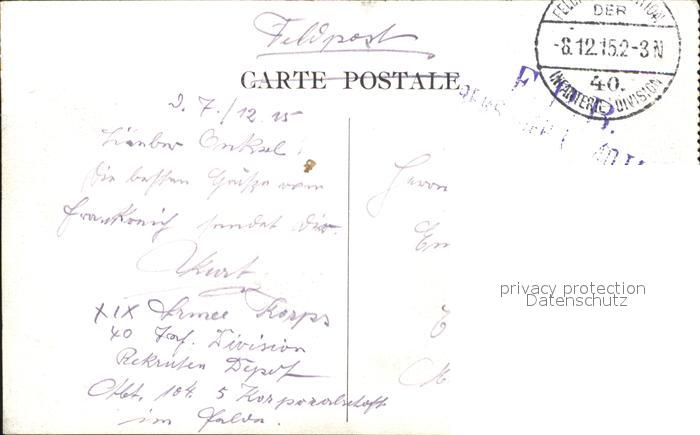 Feldpost
CARTE POSTALE
DER
-8.12.15 2-3N
40.
INFANTERIE DIVISION
F.A.R.
D. 7./12.15
Lieber Onkel!
Die besten Grüße vom
Frankreich sendet Dir
Kurt.
XIX Armee Korps
40 Inf. Division
Rekruten Depot
Abt. 104. 5 Korporalschaft
im Felde.
Herrn
privacy protection
Datenschutz